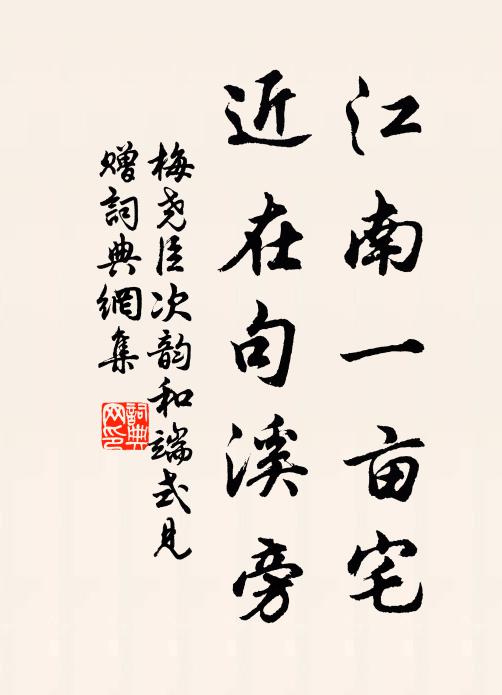 江南一亩宅
近在句溪旁
梅尧臣次韵和端式见
赠詞典網集
詞典
网印